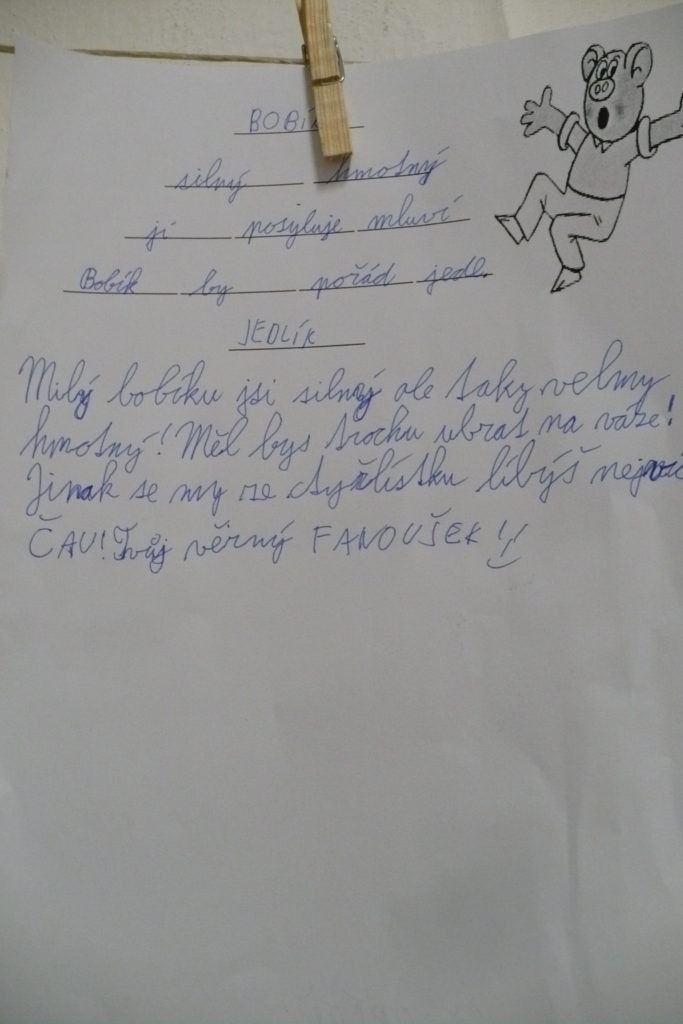 BOBÍK
silný hmotný
jí posyluje mluví
Bobík by pořád jedl.
JEDLÍK
Milý bobíku jsi silný ale taky velmy
hmotný! Měl bys trochu ubrat na váze!
Jinak se my ze čtyřlístku líbýš nejvíc
ČAU! Tvůj věrný FANOUŠEK!